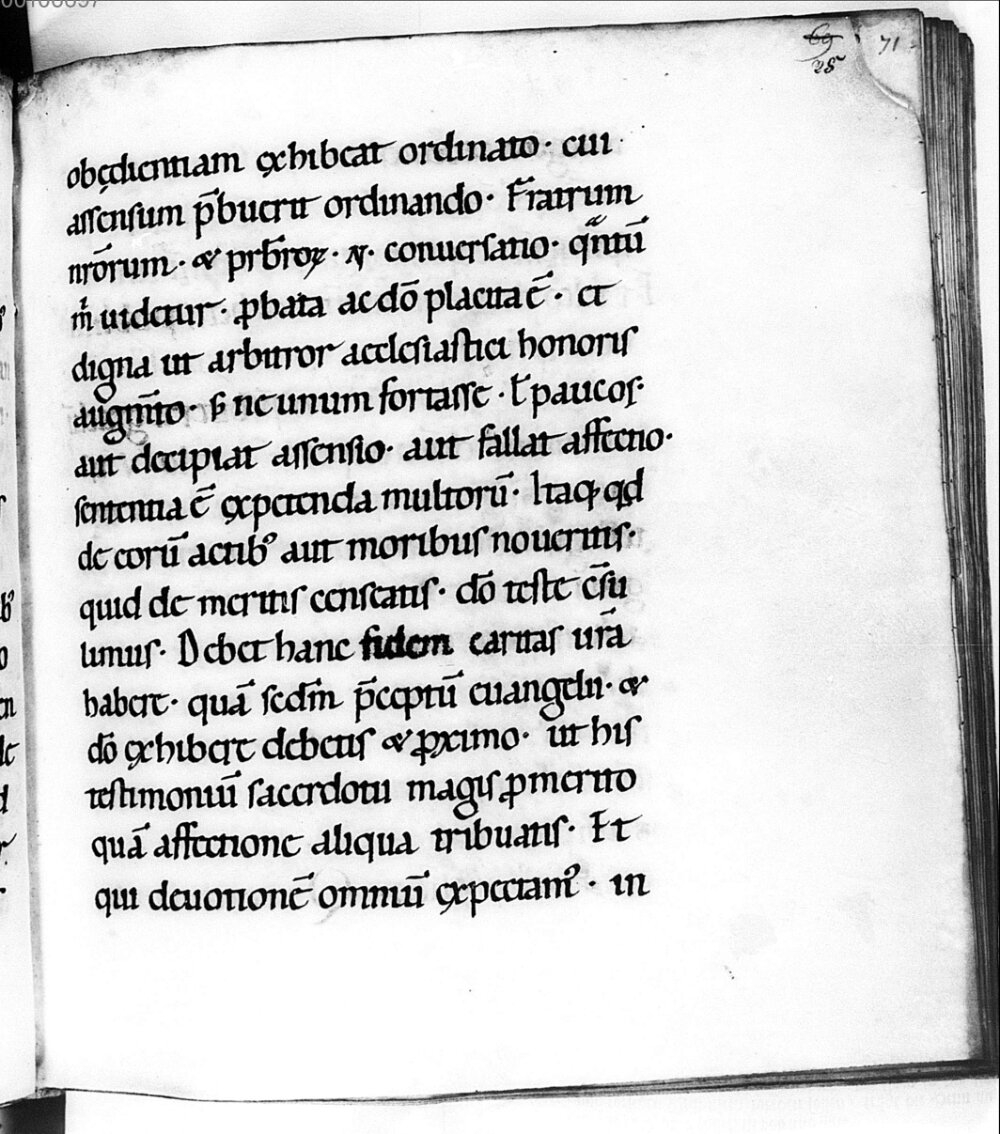 69 71
28
obędientiam ęxhibeat ordinato · cui
assensum p̄buerit ordinando · Fr̄atrum
nr̄orum · & prb̄roꝝ · N · conuersatio · qͣntū
m̊ uidetur · ꝓbata ac dō placita ē · et
digna ut arbitror aecclesiastici honoris
augm̄to · s̄ ne unum fortasse · ł paucos ·
aut decipiat assensio · aut fallat affectio ·
sententia ē ęxpetenda multorū · Itaq; qd
de eorū actib᾿ aut moribus noueritis ·
quid de meritis censeatis · dō teste c̄su
limus · Debet hanc fidem caritas ur̄a
habere · quā secdm̄ p̄ceptū euangelii · &
dō ęxhibere debetis & ꝓximo · ut his
testimoniū sacerdotii magis ꝓ merito
quā affectione aliqua tribuatis · Et
qui deuotionē omniū ęxpectam᾿ · in